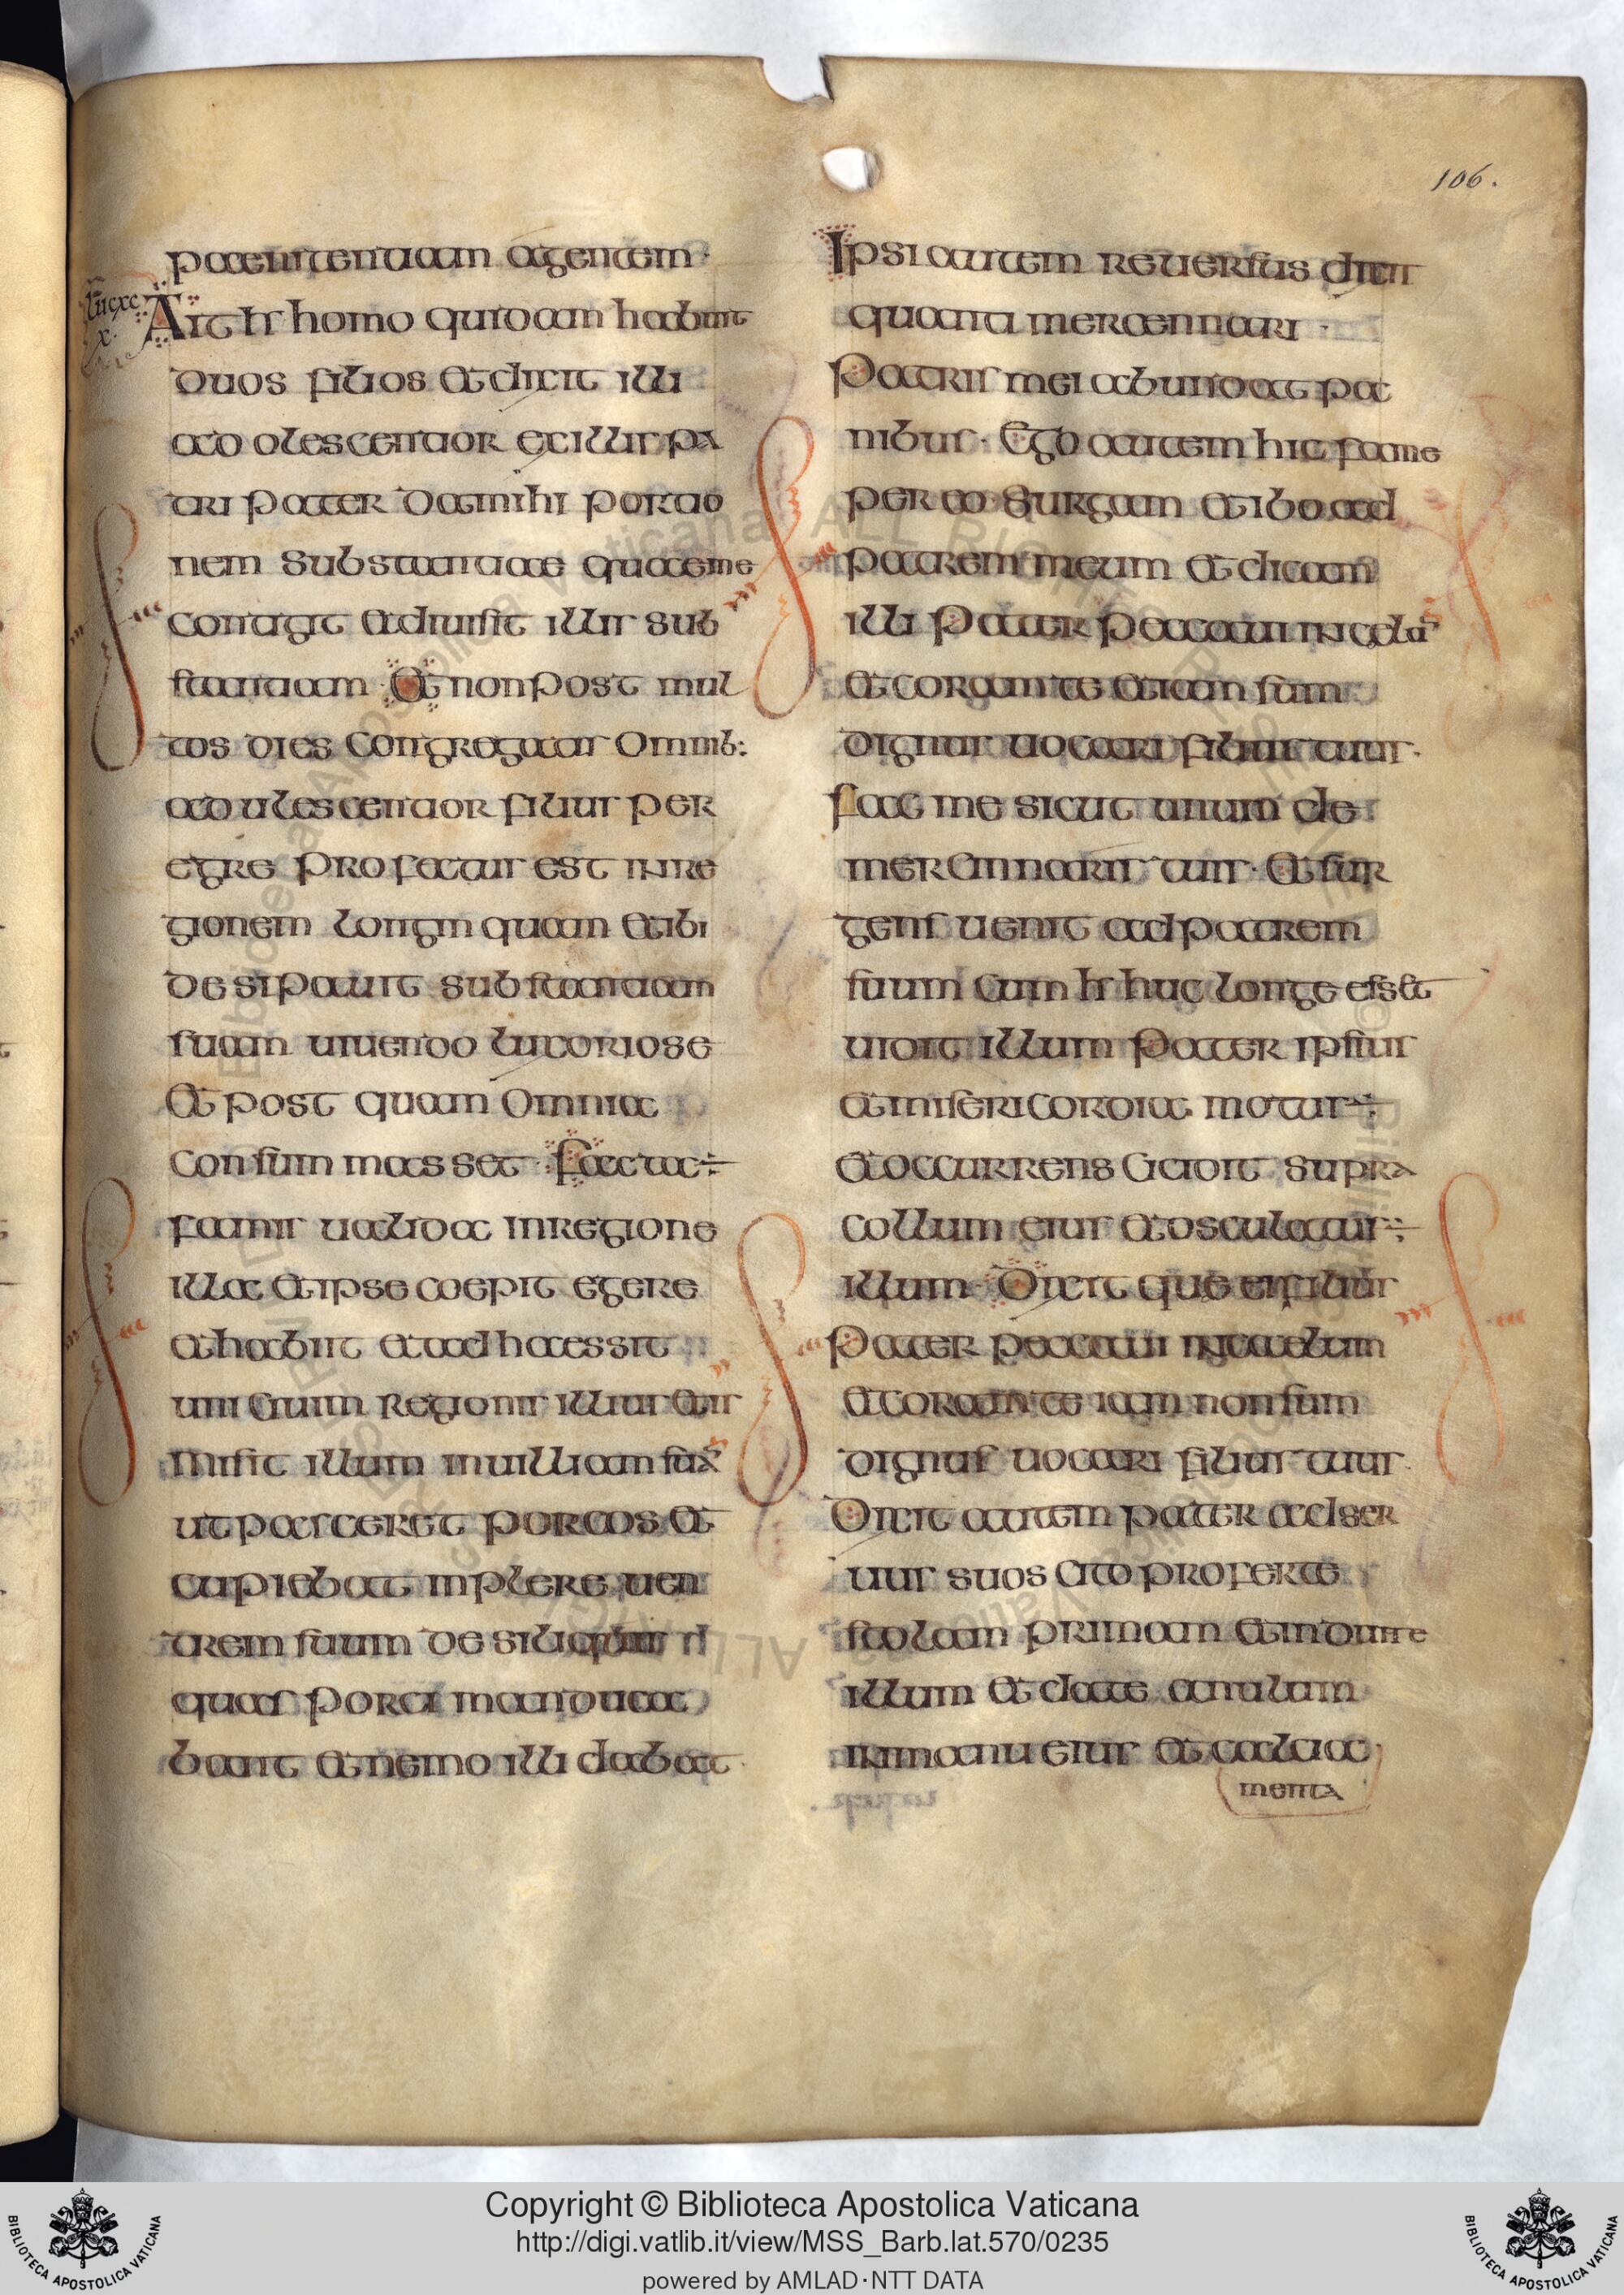 106.
paenitentiam agentem·
Lucxc
x.
Ait ħr homo quidam habuit
duos filios et dixit illi
adolescentior ex illis pa
tri pater da mihi portio
nem substantiae quae me
contigit et diuisit illis sub
stantiam · Et non post mul
tos dies congregatis omnib:
adulescentior filius per
egre profectus est in re
gionem longinquam et ibi
desipauit substantiam
suam uiuendo luxoriose
et post quam omnia
consummasset · facta ÷
famis ualida in regione
illa et ipse coepit egere
et habiit et adhaessit
uni ciuium regionis illius et is
misit illum in uilliam suā
ut pasceret porcos et
cupiebat inplere uen
trem suum de siliquis
quas porci manduca
bant et nemo illi dabat·
Ipsi autem reuersus dixit
quanti mercennari ·
Patris mei abundat pa
nibus · Ego autem hic fame
pereo Surgam et ibo ad
patrem meum et dicam
illi Pater Peccaui in celū
et coram te et iam sum
dignus uocari filius tuus·
fac me sicut unum de
mercinnaris tuis· Et sur
gens uenit ad patrem
suum Cum ħr huc longe esset
uidit illum Pater ipsius
et misericordia motus ÷
et occurrens cicidit supra
collum eius et osculatus ÷
illum · Dixit que ei filius
Pater peccaui in caelum
et coram te iam non sum
dignus uocari filius tuus·
Dixit autem pater ad ser
uus suos Cito proferte
stolam primam et induite
illum et date anulum
in manu eius et calcia
menta
Copyright © Biblioteca Apostolica Vaticana
http://digi.vatlib.it/view/MSS_Barb.lat.570/0235
powered by AMLAD·NTT DATA
BIBLIOTECA APOSTOLICA VATICANA
BIBLIOTECA APOSTOLICA VATICANA